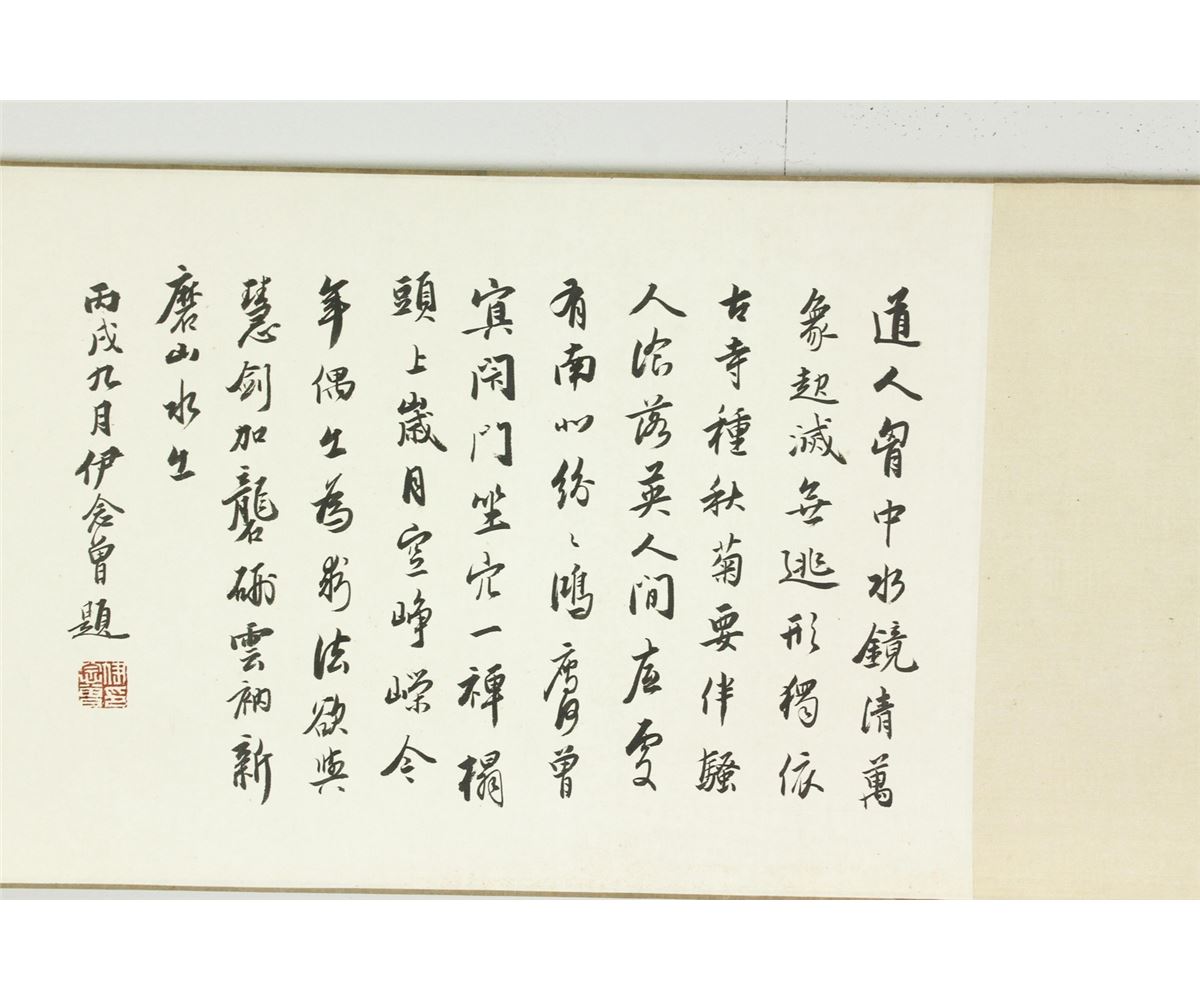 道人胷中水鏡清萬
象起滅無逃形獨依
古寺種秋菊要伴騷
人飡落英人間底處
有南北紛〻鴻鴈何曾
冥閉門坐穴一禪榻
頭上歲月空崢嶸今
年偶出為求法欲與
慧劍加礱硎雲衲新
磨山水出
丙戌九月伊念曾題
伊印念曾